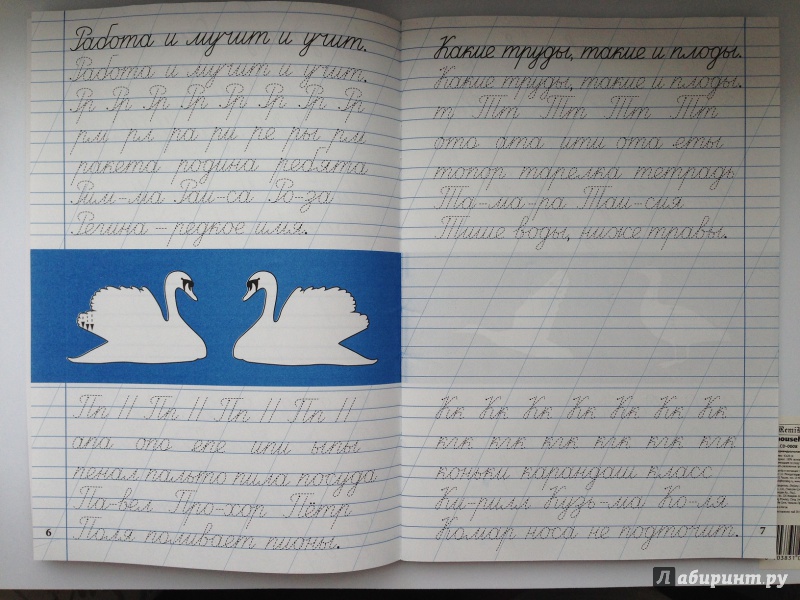 Работа и мучит и учит.
Работа и мучит и учит.
Рр Рр Рр Рр Рр Рр Рр Рр
рм рл ра ри ре ры рм
ракета родина ребята
Рим-ма Раи-са Ро-за
Регина – редкое имя.
Пп // Пп // Пп // Пп //
апа опо епе ипи ыпы
пенал пальто пила посуда
Па-вел Про-хор Пётр
Поля поливает пионы.
6
Какие труды, такие и плоды.
Какие труды, такие и плоды.
т Тт Тт Тт Тт
ото ата ити ота еты
топор тарелка тетрадь
Та-ма-ра Таи-сия
Тише воды, ниже травы.
Кк Кк Кк Кк Кк Кк Кк
клк клк клк клк клк клк клк
коньки карандаш класс
Ки-рилл Кузь-ма Ко-ля
Комар носа не подточит.
7
Лабиринт.ру